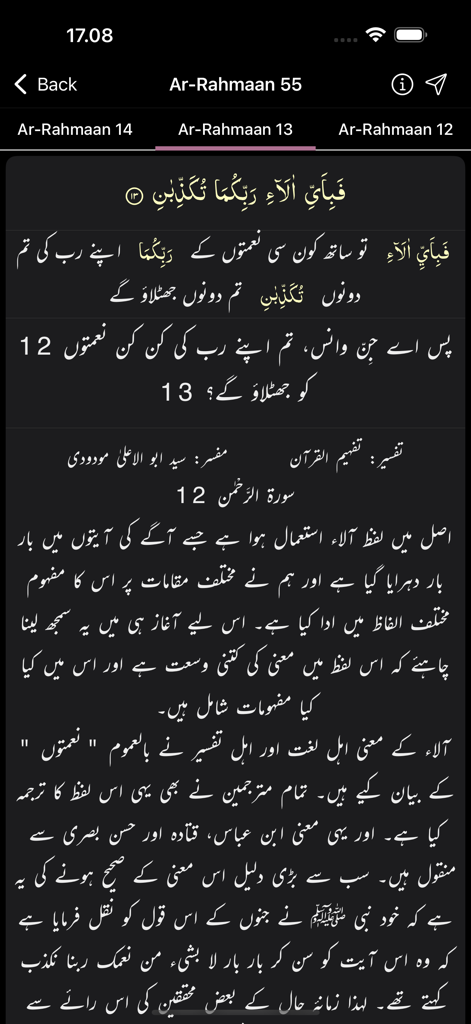 17.08
Back
Ar-Rahmaan 55
Ar-Rahmaan 14 Ar-Rahmaan 13 Ar-Rahmaan 12
فَبِاَىِّ اٰلَآءِ رَبِّكُمَا تُكَذِّبٰنِ ۝۱۳
فَبِاَيِّ اٰلَآءِ تو ساتھ کون سی نعمتوں کے رَبِّكُمَا اپنے رب کی تم
دونوں تُكَذِّبٰنِ تم دونوں جھٹلاؤ گے
پس اے جِنّ وانس، تم اپنے رب کی کن کن نعمتوں 12
کو جھٹلاؤ گے؟ 13
تفسیر: تفہیم القرآن مفسر: سید ابو الاعلیٰ مودودی
سورة الرَّحْمٰن 12
اصل میں لفظ آلاء استعمال ہوا ہے جسے آگے کی آیتوں میں بار
بار دہرایا گیا ہے اور ہم نے مختلف مقامات پر اس کا مفہوم
مختلف الفاظ میں ادا کیا ہے۔ اس لیے آغاز ہی میں یہ سمجھ لینا
چاہئے کہ اس لفظ میں معنی کی کتنی وسعت ہے اور اس میں کیا
کیا مفہومات شامل ہیں۔
آلاء کے معنی اہل لغت اور اہل تفسیر نے بالعموم " نعمتوں "
کے بیان کیے ہیں۔ تمام مترجمین نے بھی یہی اس لفظ کا ترجمہ
کیا ہے۔ اور یہی معنی ابن عباس، قتادہ اور حسن بصری سے
منقول ہیں۔ سب سے بڑی دلیل اس معنی کے صحیح ہونے کی یہ
ہے کہ خود نبی ﷺ نے جنوں کے اس قول کو نقل فرمایا ہے
کہ وہ اس آیت کو سن کر بار بار لا بشیء من نعمک ربنا نکذب
کہتے تھے۔ لہذا زمانۂ حال کے بعض محققین کی اس رائے سے